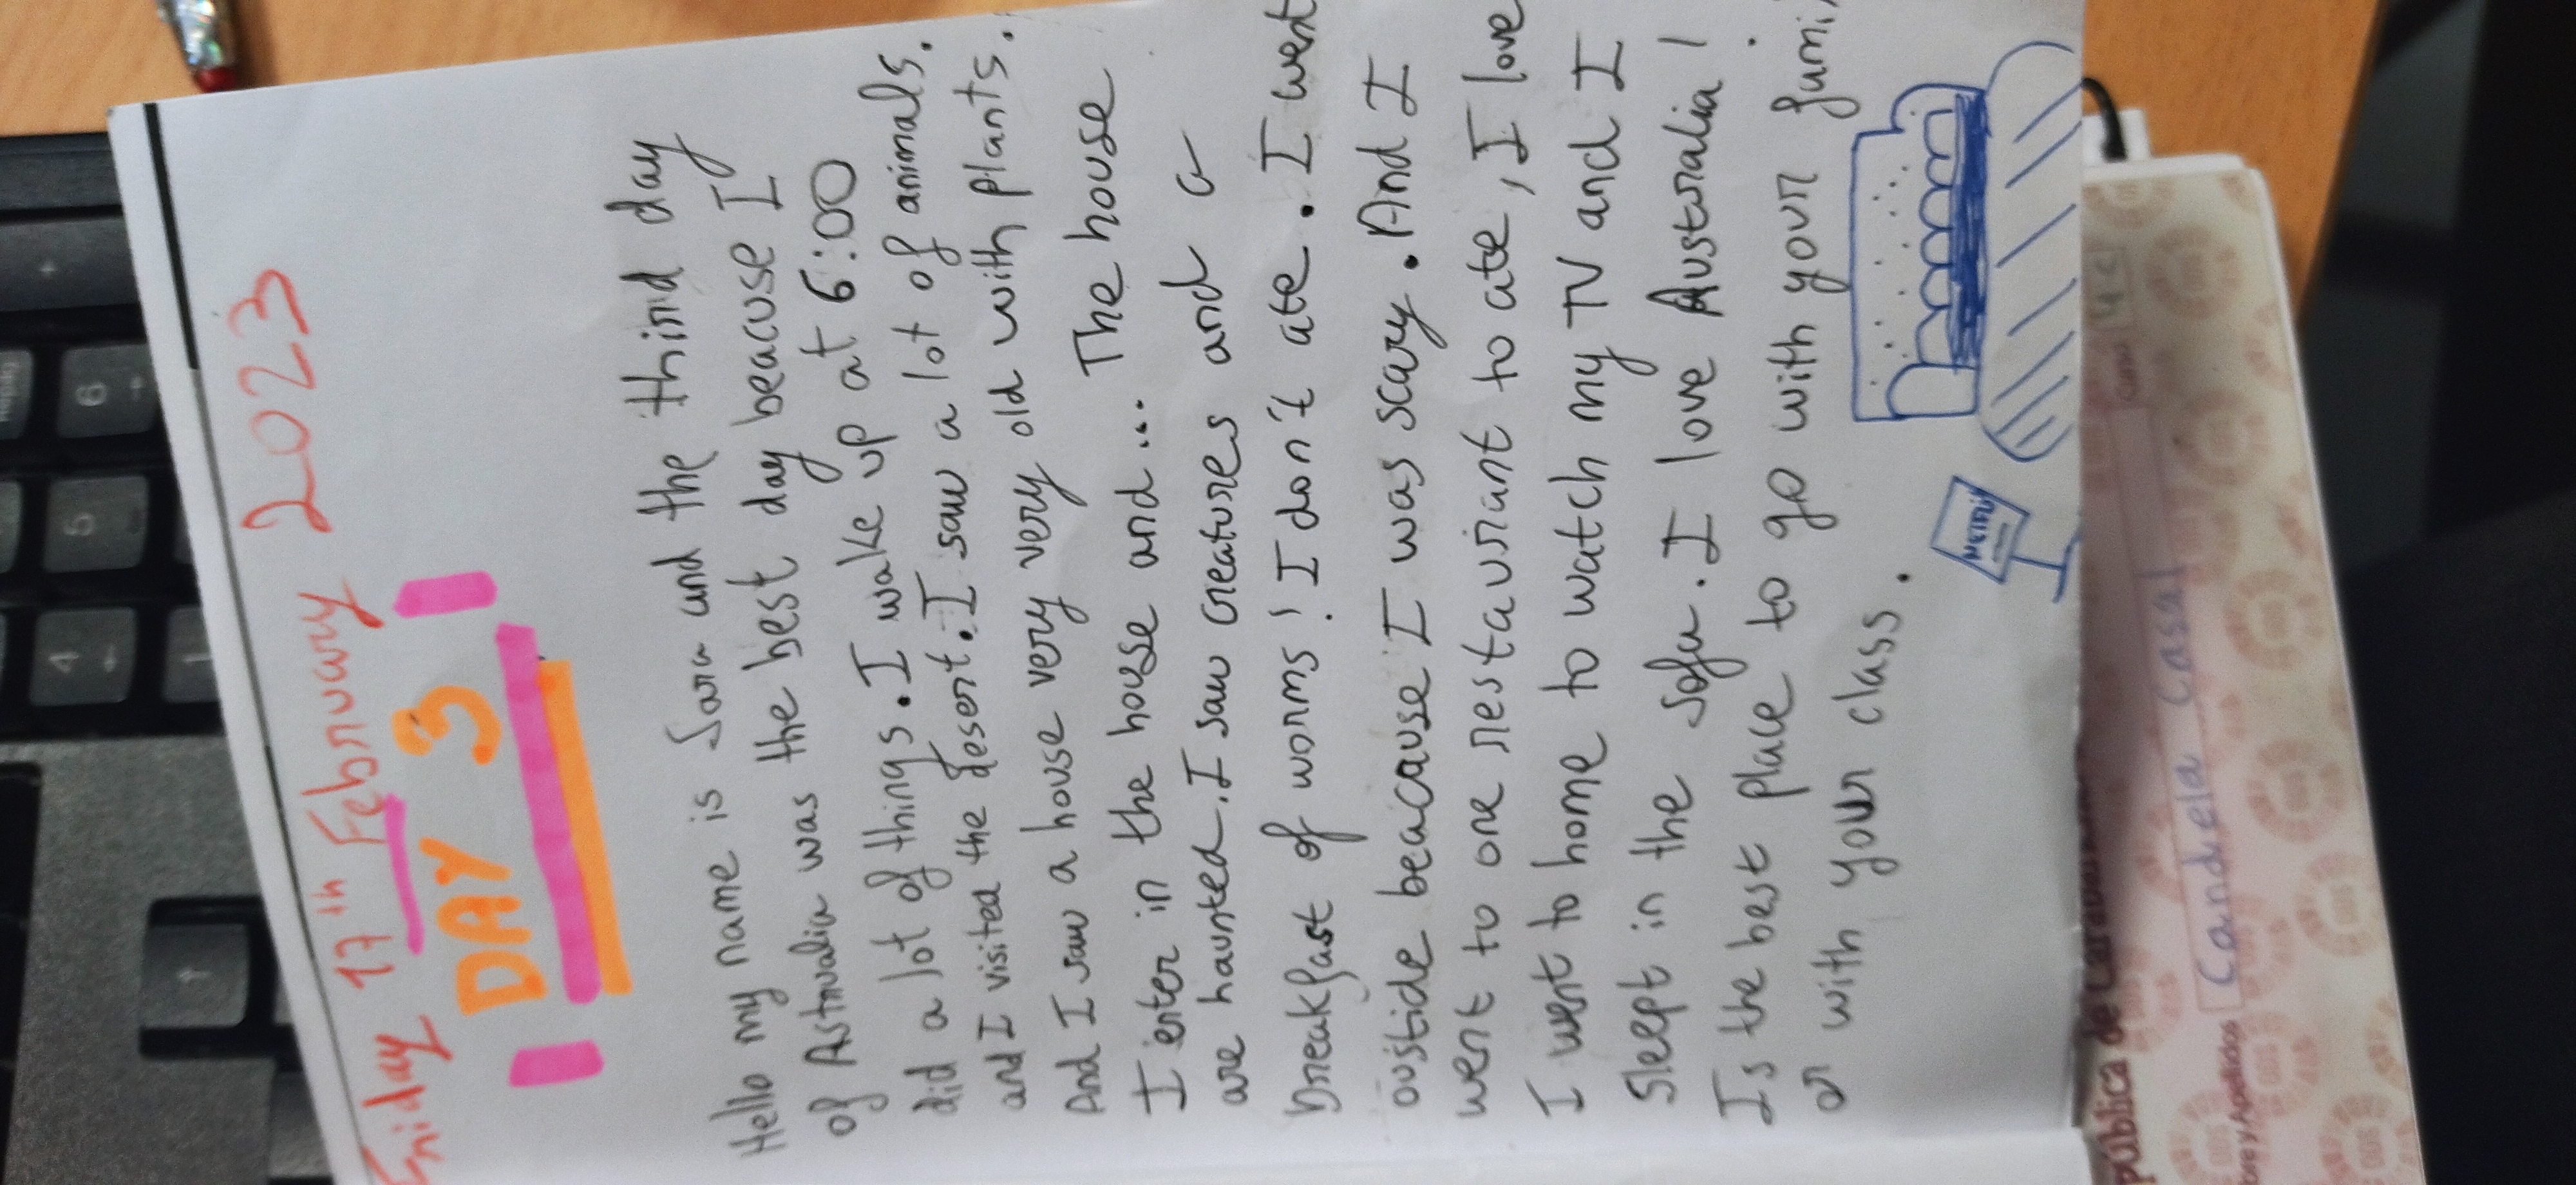 Friday 17th February 2023
DAY 3
Hello my name is Sara and the third day
of Astrualia was the best day beacuse I
did a lot of things. I wake up at 6:00
and I visited the desert. I saw a lot of animals.
And I saw a house very very very old with plants.
I enter in the house and... The house
are haunted. I saw creatures and a
breakfast of worms! I don't ate. I went
oustide beacause I was scary. And I
went to one restaurant to ate, I love
I went to home to watch my TV and I
Slept in the sofa. I love Australia!
Is the best place to go with your fami
or with your class.
NETFLI
pública de
bre y Apellidos
Candela Casal
Curso
4º C